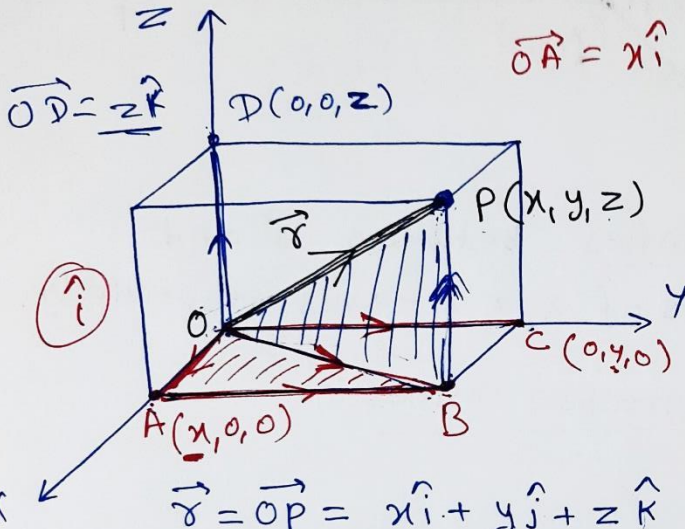 Z
OA = xî
OD = zk̂
D(0,0,z)
P(x,y,z)
r
î
O
Y
C (0,y,0)
A(x,0,0)
B
X
r = OP = xî + yĵ + zk̂